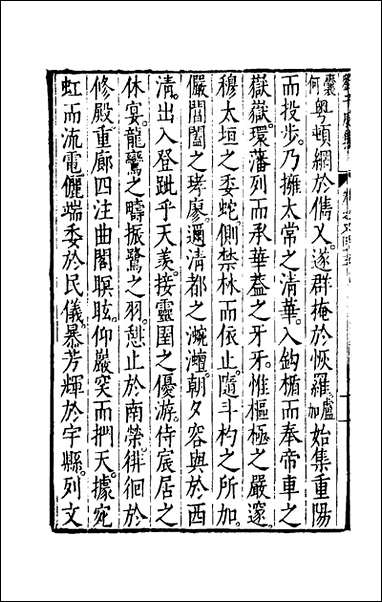 囊粤頓綱於儁乂。遂群掩於恢羅。盧何加始集重陽
而投步。乃擁太常之清華。入鈎楯而奉帝車之
嶽嶽。環藩列而承華蓋之牙牙。惟樞極之嚴邃。
穆太垣之委蛇。側禁林而依止。隨斗杓之所加。
儼閶闔之㟏廖。邇清都之涴澶。朝夕容與於西
清。出入登跐乎天羨。接靈圄之優游。侍宸居之
休宴。龍鸞之疇振鷺之羽。憩止於南榮。徘徊於
修殿。重廊四注曲閣瞑眩。仰巖突而捫天。據宛
虹而流電。儷端委於民儀。暴芳輝於宇縣。列文